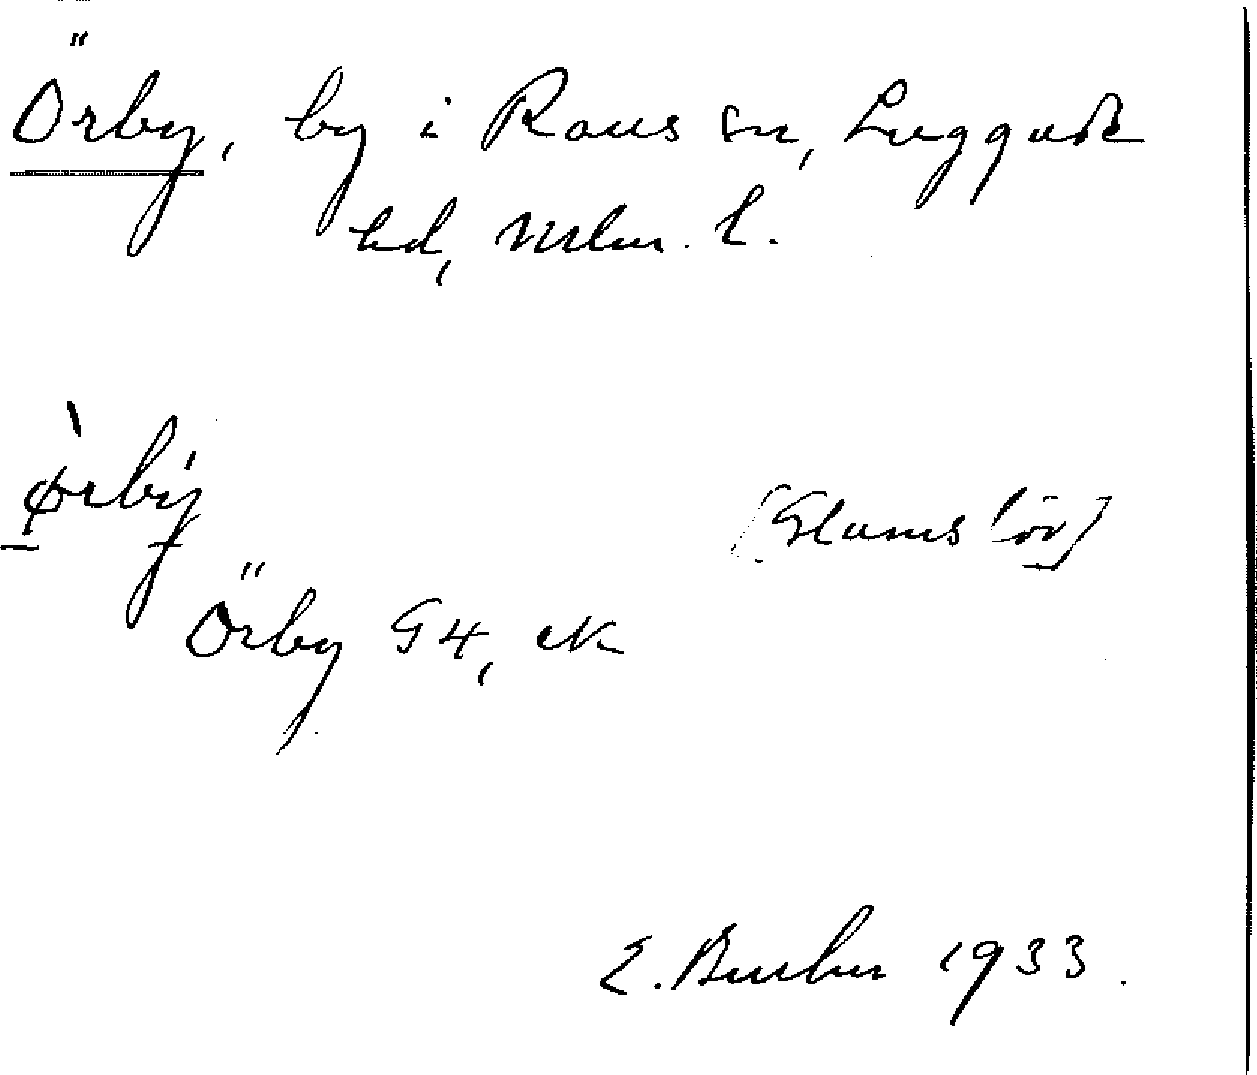 Örby, by i Raus sn, Luggude
hd, Mlm. l.
ørby
[Glumslöv]
Örby G4, ek
E. 1933.